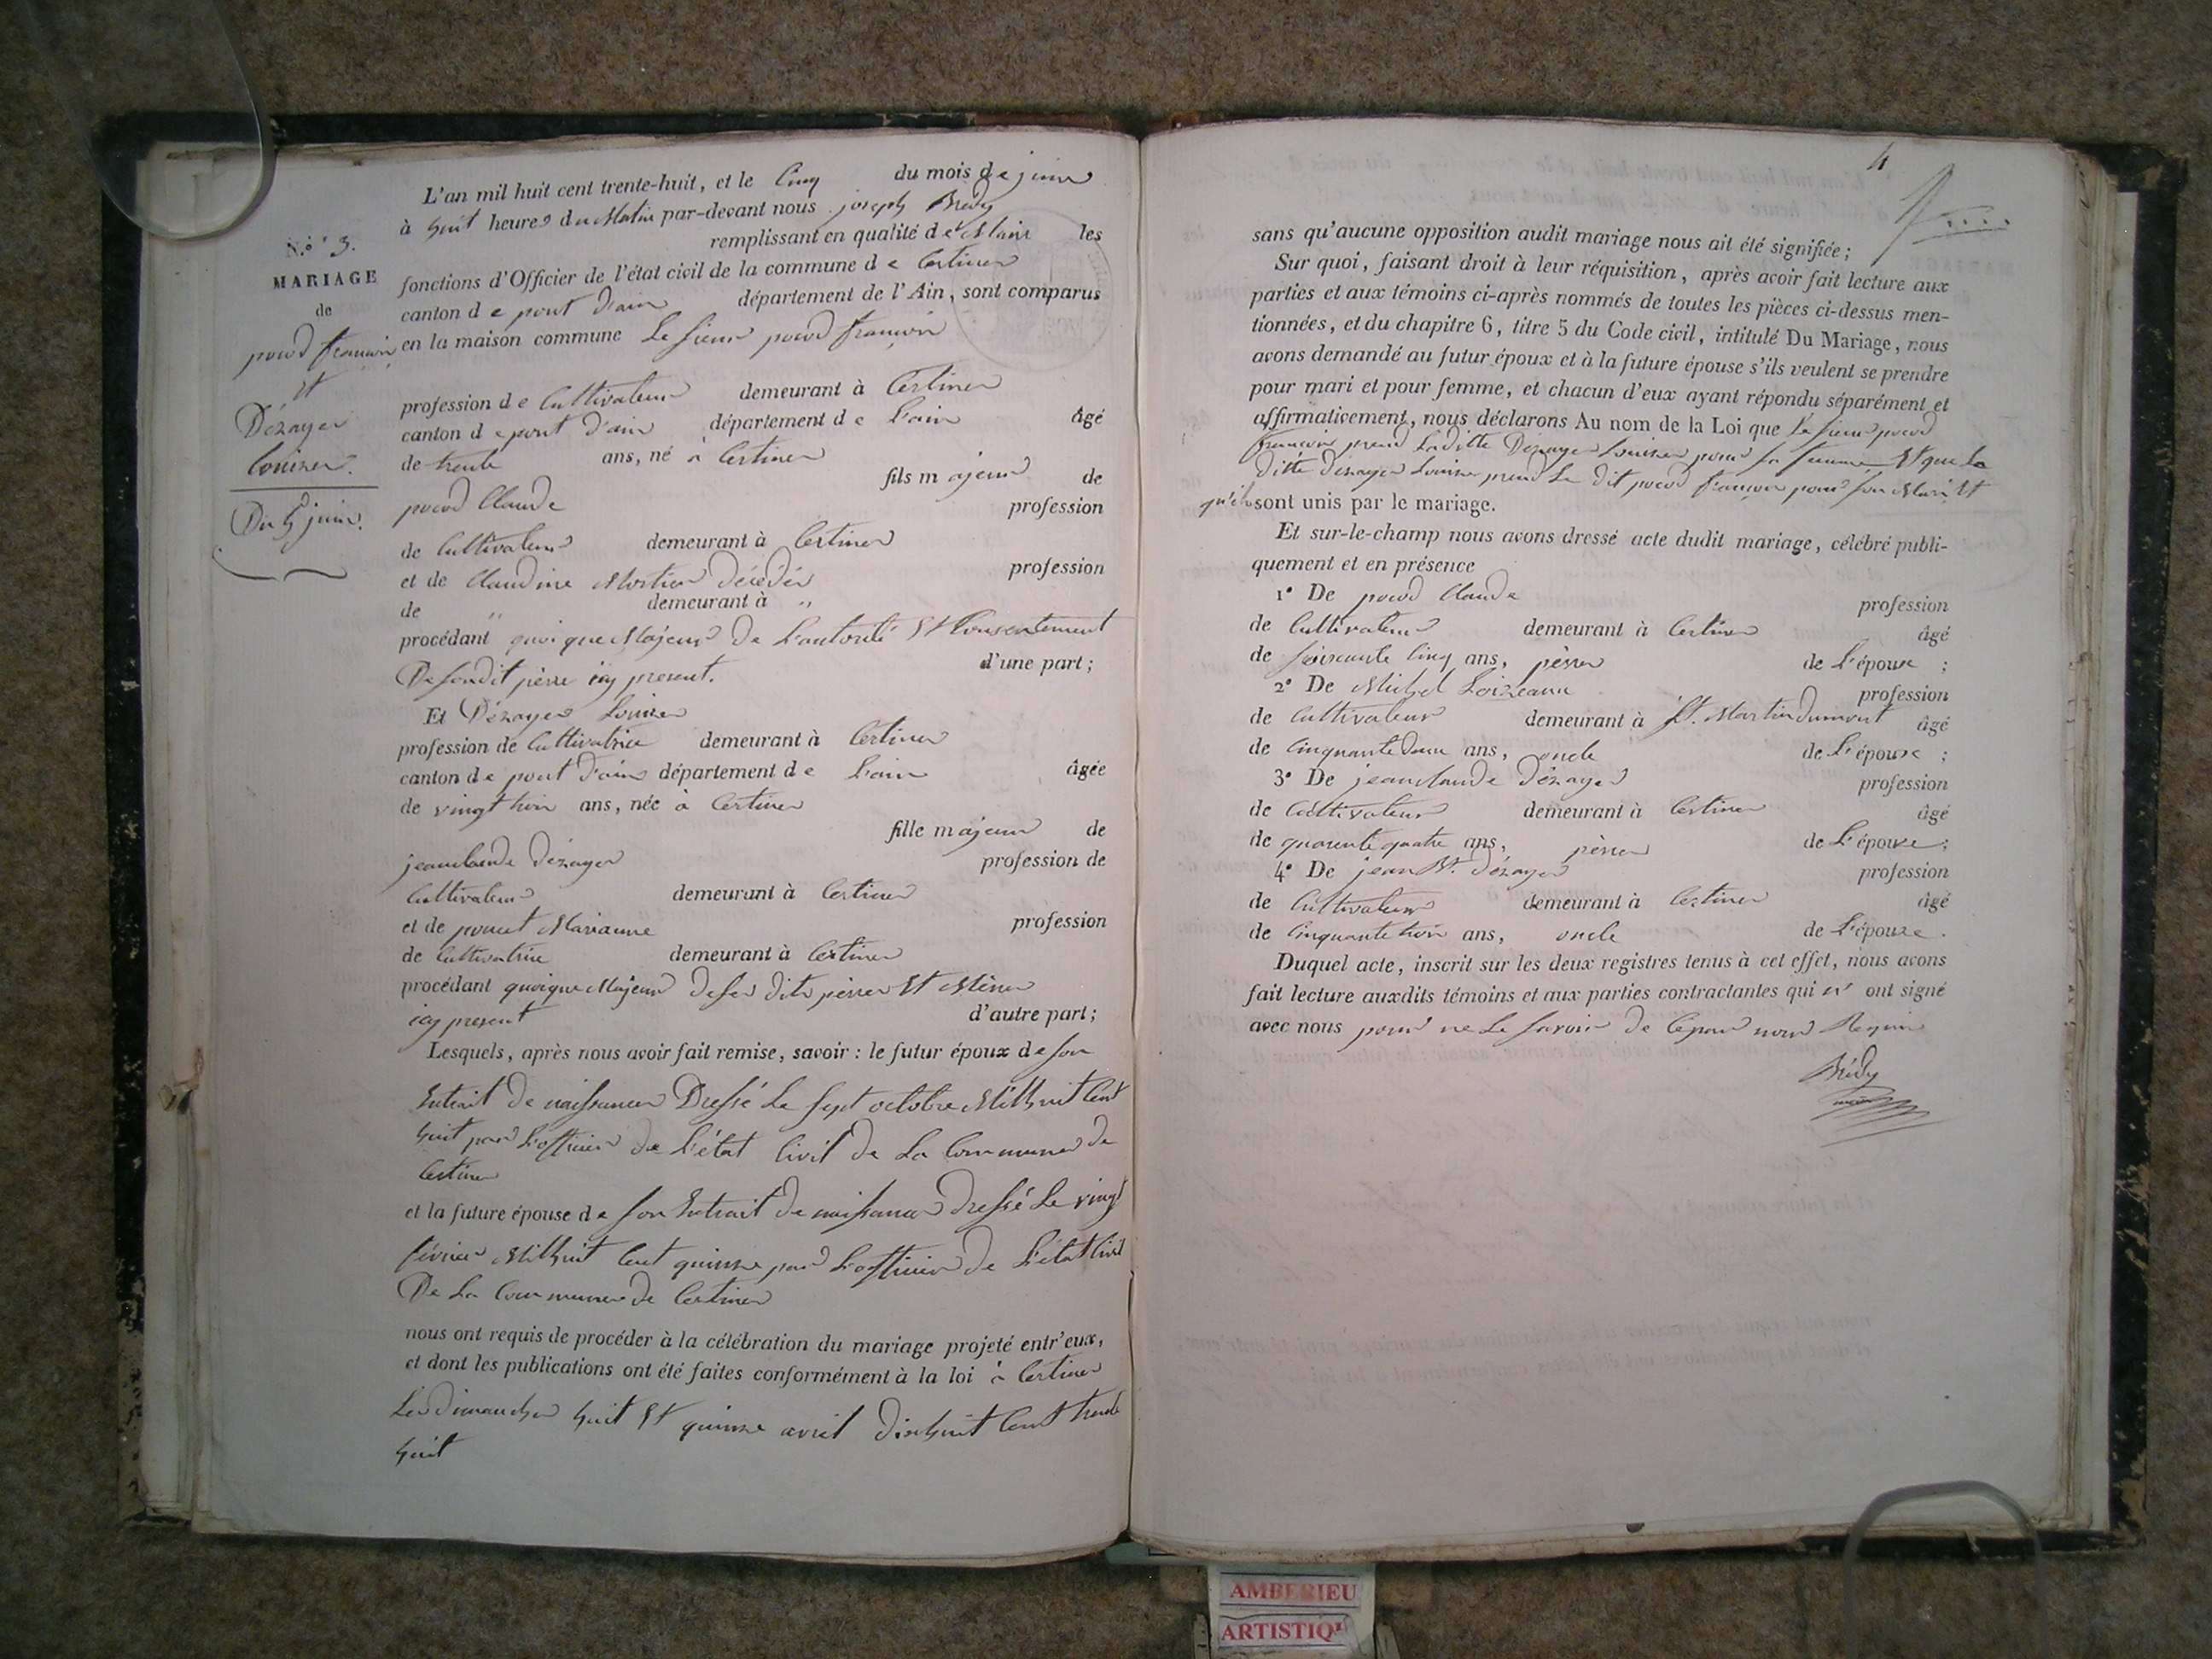 L'an mil huit cent trente-huit, et le Cinq du mois de juin
à huit heures du Matin par-devant nous joseph Brédy
remplissant en qualité de Maire les
fonctions d'Officier de l'état civil de la commune de Certines
canton de pont d'ain département de l'Ain, sont comparus
en la maison commune Le sieur françois
profession de Cultivateur demeurant à Certines
canton de pont d'ain département de L'ain âgé
de trente ans, né à Certines
fils majeur de
Claude profession
de Cultivateur demeurant à Certines
et de Claudine décédée profession
de " demeurant à "
procédant quoique Majeur de L'autorité Et Consentement
De son dit père icy present. d'une part;
Et Dénayer Louise
profession de Cultivatrice demeurant à Certines
canton de pont d'ain département de L'ain âgée
de vingt trois ans, née à Certines
fille majeur de
jean claude Dénayer profession de
Cultivateur demeurant à Certines
et de poncet Marianne profession
de Cultivatrice demeurant à Certines
procédant quoique Majeur de ses dits père Et Mère
icy present d'autre part;
Lesquels, après nous avoir fait remise, savoir : le futur époux de son
Extrait de naissance Dressé Le sept octobre Mil huit Cent
huit par L'officier de L'état Civil de La Commune de
Certines
et la future épouse de son Extrait de naissance dressé Le vingt
février Mil huit Cent quinze par L'officier de L'état Civil
De La Commune de Certines
nous ont requis de procéder à la célébration du mariage projeté entr'eux,
et dont les publications ont été faites conformément à la loi à Certines
Les dimanches huit Et quinze avril dixhuit Cent trente
huit
N.º 3.
MARIAGE
de
françois
Et
Dénayer
Louise.
Du 5 juin.
4
sans qu'aucune opposition audit mariage nous ait été signifiée;
Sur quoi, faisant droit à leur réquisition, après avoir fait lecture aux
parties et aux témoins ci-après nommés de toutes les pièces ci-dessus men-
tionnées, et du chapitre 6, titre 5 du Code civil, intitulé Du Mariage, nous
avons demandé au futur époux et à la future épouse s'ils veulent se prendre
pour mari et pour femme, et chacun d'eux ayant répondu séparément et
affirmativement, nous déclarons Au nom de la Loi que Le sieur
françois prend Laditte Dénayer Louise pour sa femme Et que La
ditte dénayer Louise prend Le dit françois pour son Mari Et
qu'ils sont unis par le mariage.
Et sur-le-champ nous avons dressé acte dudit mariage, célébré publi-
quement et en présence
1º De Claude profession
de Cultivateur demeurant à Certines âgé
de soixante Cinq ans, père de L'époux ;
2º De Michel profession
de Cultivateur demeurant à St. Martin dumont âgé
de Cinquante deux ans, oncle de L'épouse ;
3º De jean claude Dénayer profession
de Cultivateur demeurant à Certines âgé
de quarente quatre ans, père de L'épouse;
4º De jean Bt. dénayer profession
de Cultivateur demeurant à Certines âgé
de Cinquante trois ans, oncle de L'épouse.
Duquel acte, inscrit sur les deux registres tenus à cet effet, nous avons
fait lecture auxdits témoins et aux parties contractantes qui n' ont signé
avec nous pour ne Le savoir de Ce par nous Requis
Brédy
maire
AMBERIEU
ARTISTIQ